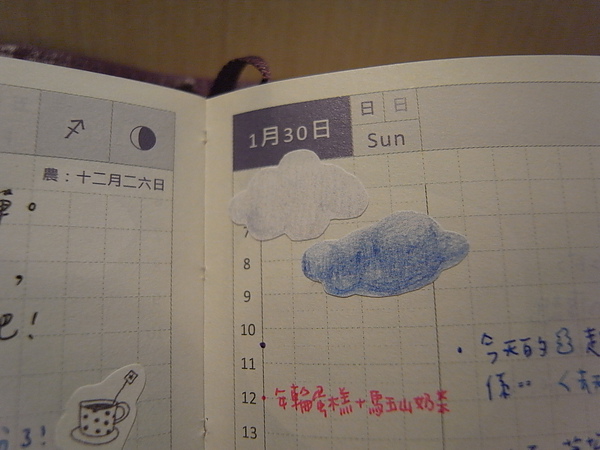 農：十二月二六日
。
，
吧！
3！
1月30日
日 日
Sun
7
8
9
10
11
12
13
年輪蛋糕+馬五山奶茶
今天的